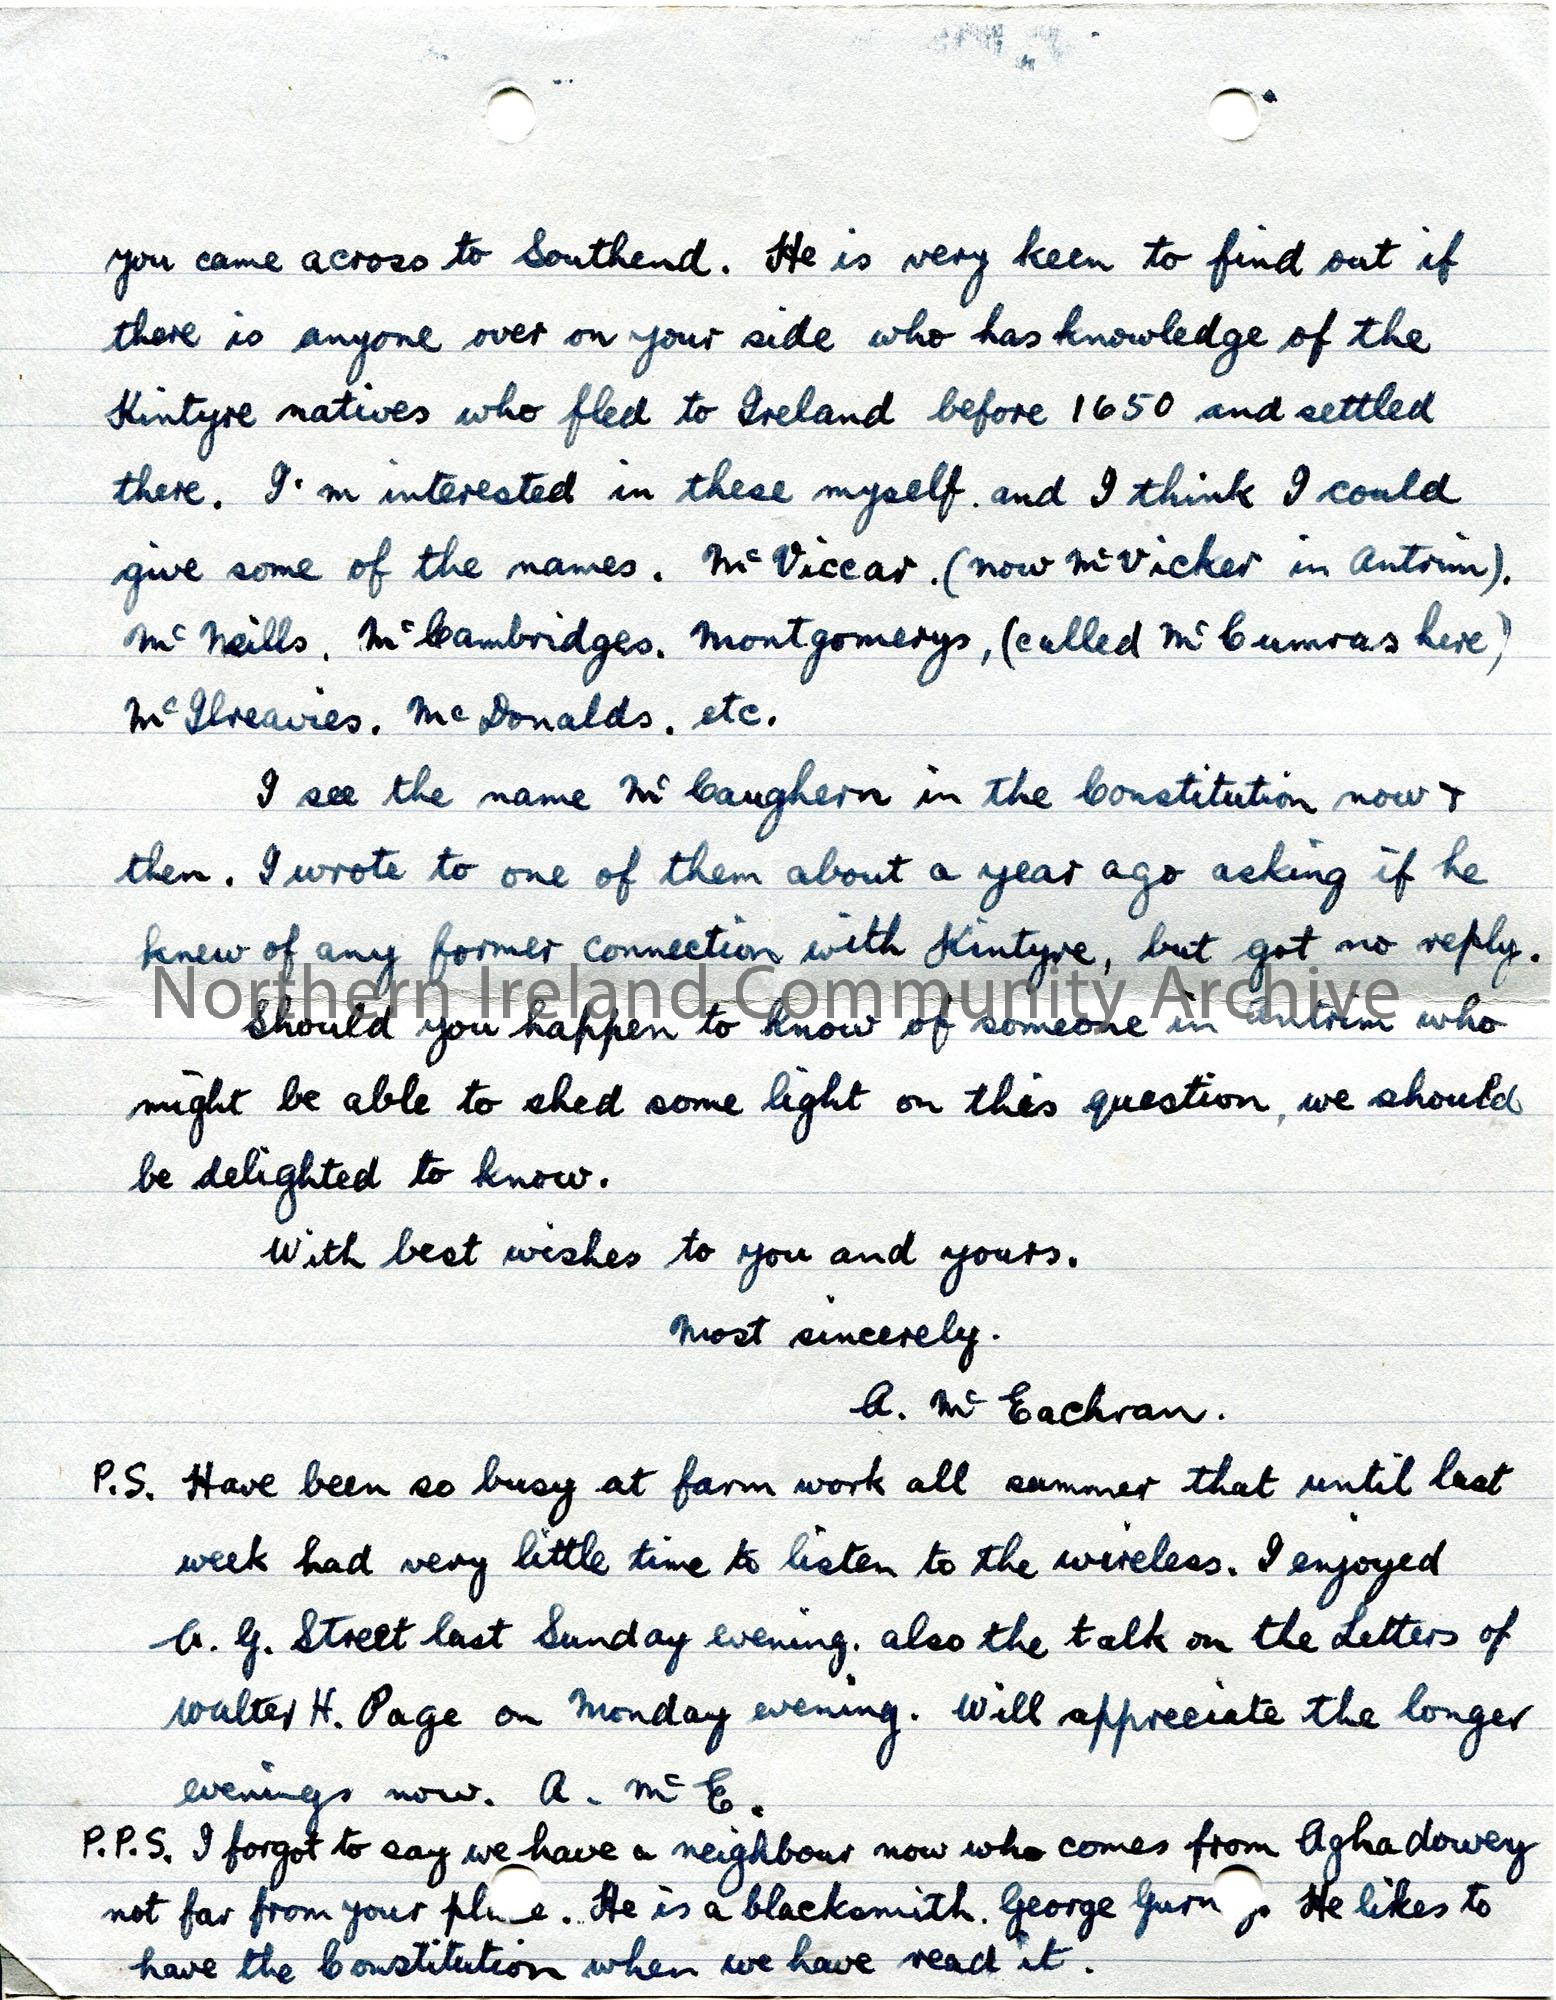 you came across to Southend. He is very keen to find out if
there is anyone over on your side who has knowledge of the
Kintyre natives who fled to Ireland before 1650 and settled
there. I'm interested in these myself. and I think I could
give some of the names. McViccar. (now McVicker in Antrim).
McNeills. McCambridges. Montgomerys, (called McCumras here)
McIlreavies. McDonalds. etc.
I see the name McCaughern in the Constitution now &
then. I wrote to one of them about a year ago asking if he
knew of any former connection with Kintyre, but got no reply.
Northern Ireland Community Archive
Should you happen to know of someone in Antrim who
might be able to shed some light on this question, we should
be delighted to know.
With best wishes to you and yours.
Most sincerely.
A. McEachran.
P.S. Have been so busy at farm work all summer that until last
week had very little time to listen to the wireless. I enjoyed
A. G. Street last Sunday evening. also the talk on the Letters of
Walter H. Page on Monday evening. Will appreciate the longer
evenings now. A. McE.
P.P.S. I forgot to say we have a neighbour now who comes from Aghadowey
not far from your place. He is a blacksmith. George He likes to
have the Constitution when we have read it.